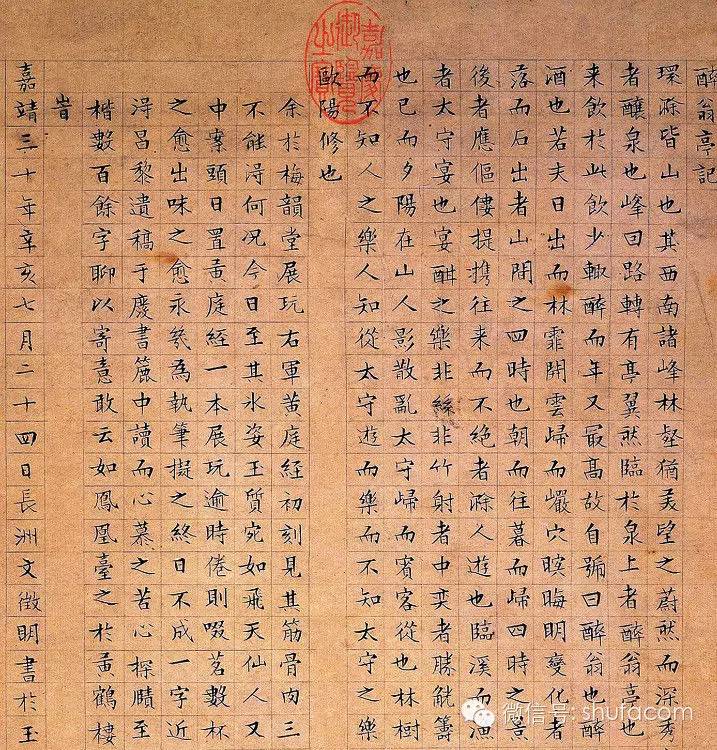 醉翁亭記
環滁皆山也其西南諸峰林壑猶美望之蔚然而深秀
者釀泉也峰回路轉有亭翼然臨於泉上者醉翁亭也
来飲於此飲少輙醉而年又最髙故自號曰醉翁也醉
酒也若夫日出而林霏開雲歸而巖穴暝晦明變化者
落而石出者山間之四時也朝而往暮而歸四時之景
後者應傴僂提携往来而不絕者滁人遊也臨溪而漁
者太守宴也宴酣之樂非絲非竹射者中奕者勝觥籌
也已而夕陽在山人影散亂太守歸而賓客從也林樹
而不知人之樂人知從太守遊而樂而不知太守之樂
歐陽修也
余於梅韻堂展玩右軍黄庭經初刻見其筋骨肉三
不能淂何况今日至其氷姿玉質宛如飛天仙人又
中案頭日置黄庭經一本展玩逾時倦則啜茗數杯
之愈出味之愈永㡬為執筆擬之終日不成一字近
淂昌黎遺稿于慶書簏中讀而心慕之苦心探賾至
楷數百餘字聊以寄意敢云如鳳凰臺之於黄鶴樓
旹
嘉靖三十年辛亥七月二十四日長洲文徵明書於玉
嘉慶御覽之寶
微信号: shufacom